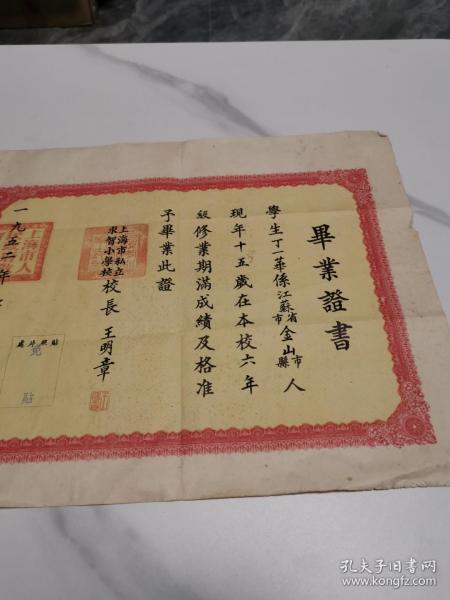 畢業證書
學生丁一華係江蘇省市金山市縣人
現年十五歲在本校六年
級修業期滿成績及格准
予畢業此證
上海市私立
求智小學校校長王明章
一九五二年
上海市人
貼照片處
免
貼
孔夫子旧书网
www.kongfz.com